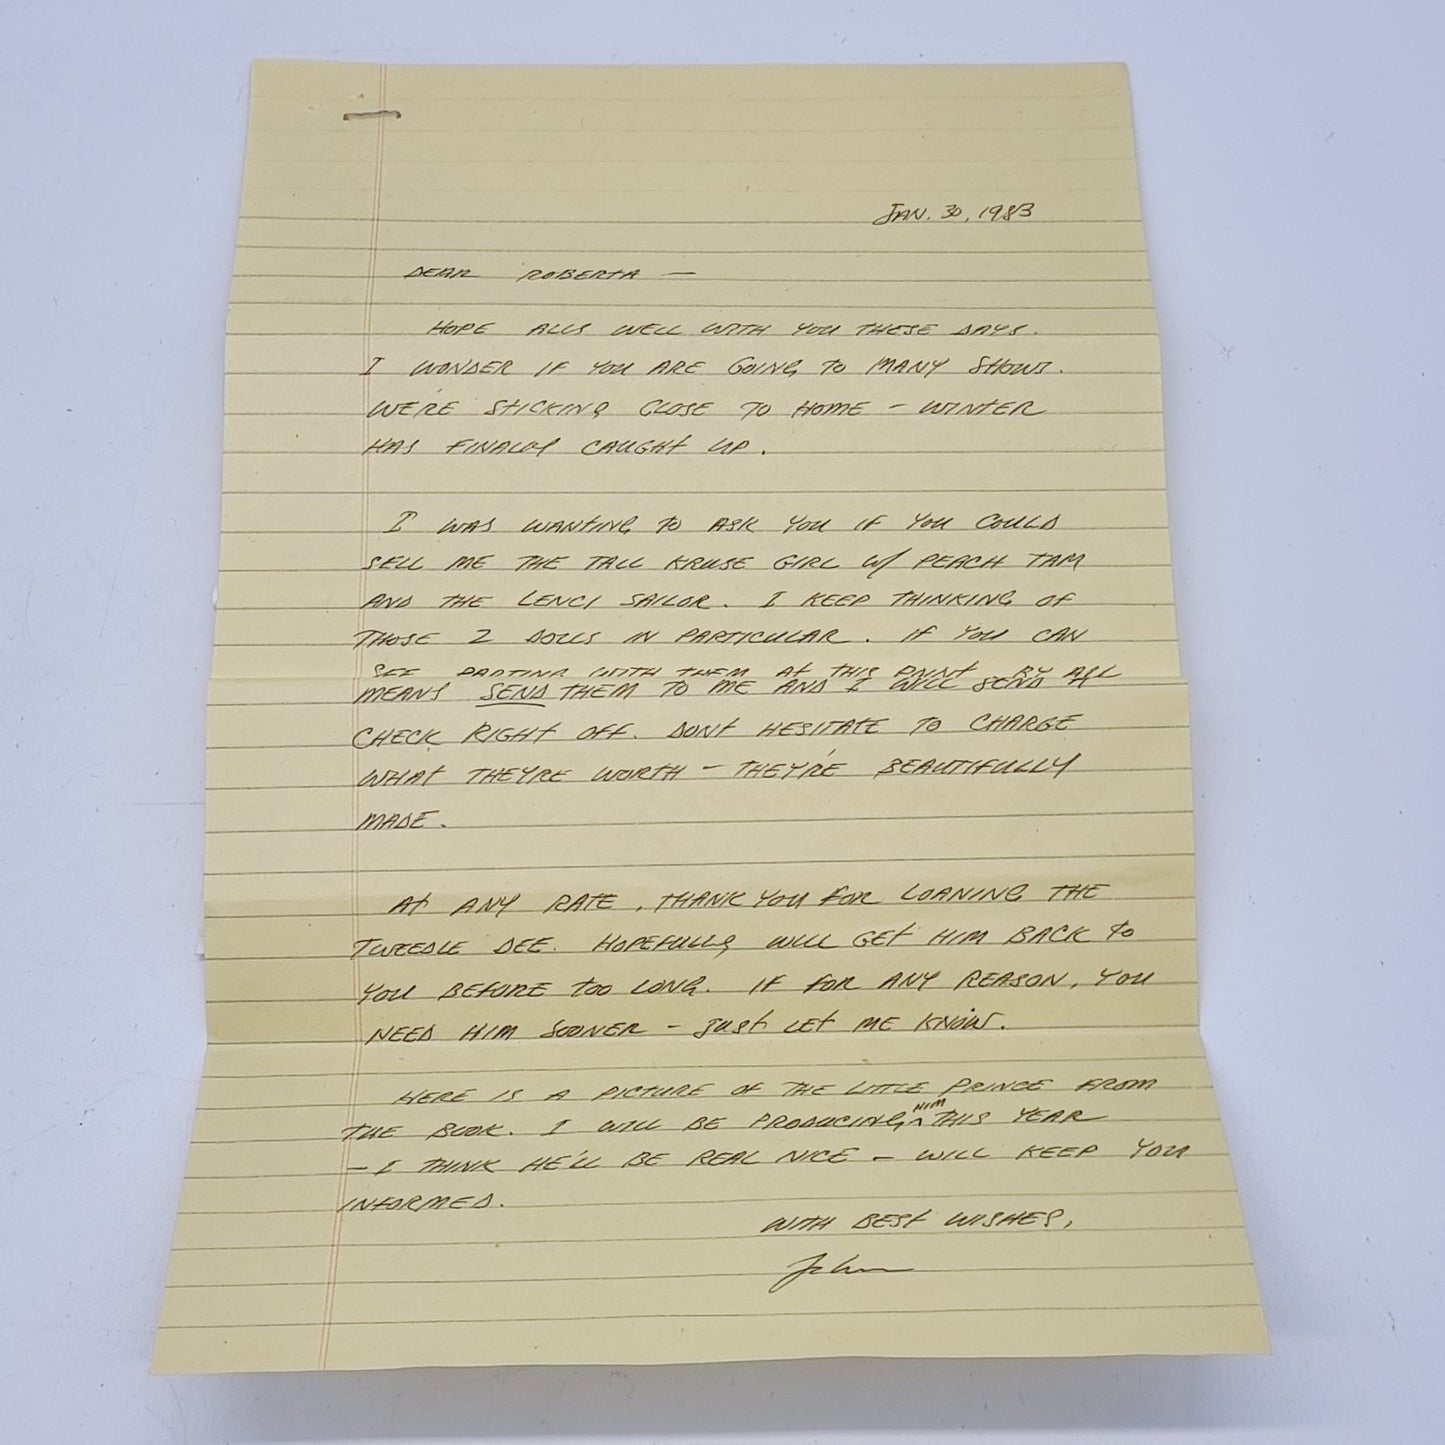 JAN. 30, 1983
DEAR ROBERTA —
HOPE ALLS WELL WITH YOU THESE DAYS.
I WONDER IF YOU ARE GOING TO MANY SHOWS.
WE'RE STICKING CLOSE TO HOME - WINTER
HAS FINALLY CAUGHT UP.
I WAS WANTING TO ASK YOU IF YOU COULD
SELL ME THE TALL KRUSE GIRL W/ PEACH TAM
AND THE LENCI SAILOR. I KEEP THINKING OF
THOSE 2 DOLLS IN PARTICULAR. IF YOU CAN
SEE PARTING WITH THEM AT THIS POINT BY ALL
MEANS SEND THEM TO ME AND I WILL SEND A
CHECK RIGHT OFF. DONT HESITATE TO CHARGE
WHAT THEYRE WORTH - THEY'RE BEAUTIFULLY
MADE.
AT ANY RATE, THANK YOU FOR LOANING THE
TWEEDLE DEE. HOPEFULLY WILL GET HIM BACK TO
YOU BEFORE TOO LONG. IF FOR ANY REASON, YOU
NEED HIM SOONER - JUST LET ME KNOW.
HERE IS A PICTURE OF THE LITTLE PRINCE FROM
THE BOOK. I WILL BE PRODUCING HIM THIS YEAR
- I THINK HE'LL BE REAL NICE - WILL KEEP YOU
INFORMED.
WITH BEST WISHES,
John